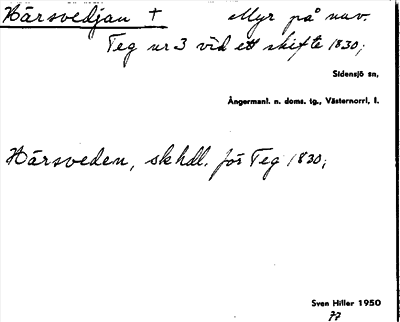 Härsvedjan † Myr på nuv.
Teg nr 3 vid ett skifte 1830;
Sidensjö sn,
Ångermanl. n. doms. tg., Västernorrl. l.
Härsveden, sk hdl. för Teg 1830;
Sven Hiller 1950
77